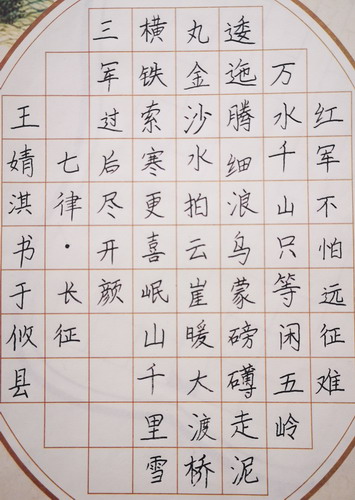 红军不怕远征难
万水千山只等闲五岭
逶迤腾细浪乌蒙磅礴走泥
丸金沙水拍云崖暖大渡桥
横铁索寒更喜岷山千里雪
三军过后尽开颜
七律·长征
王婧淇书于攸县